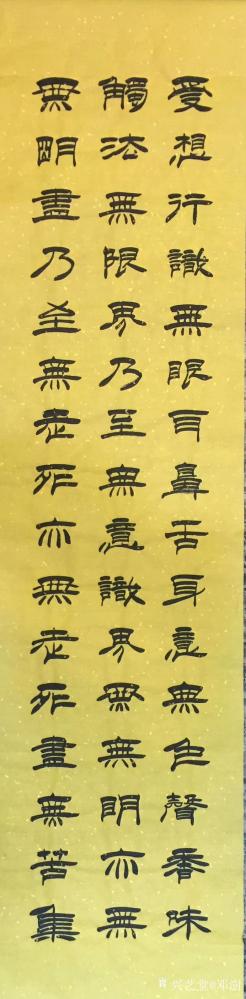 受想行識無眼耳鼻舌身意無色聲香味
觸法無限界乃至無意識界無無明亦無
無明盡乃至無老死亦無老死盡無苦集
兴艺堂@邓澍